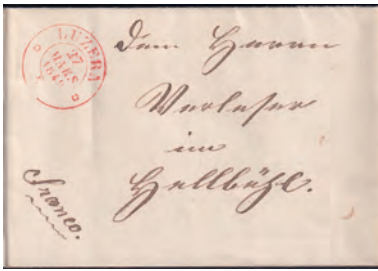 LUZERN
27
MARS
Dem Herrn
Verleser
im
Hellbühl.
Franco.